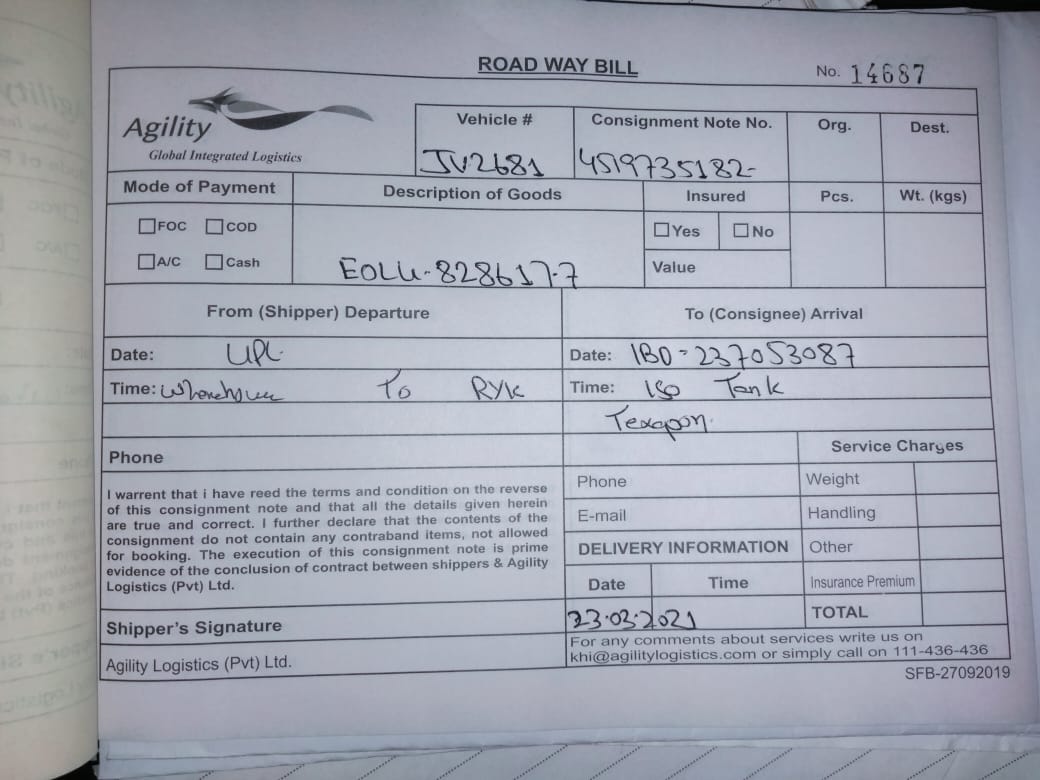 ROAD WAY BILL
No. 14687
Agility
Global Integrated Logistics
Vehicle # Consignment Note No. Org. Dest.
JV2681 4519735182-
Mode of Payment Description of Goods Insured Pcs. Wt. (kgs)
FOC COD Yes No
A/C Cash Value
EOLU-828617-7
From (Shipper) Departure To (Consignee) Arrival
Date: UPL Date: IBD-237053087
Time: To RYK Time: ISO Tank
Texapon.
Phone Service Charges
I warrent that i have reed the terms and condition on the reverse
of this consignment note and that all the details given herein
are true and correct. I further declare that the contents of the
consignment do not contain any contraband items, not allowed
for booking. The execution of this consignment note is prime
evidence of the conclusion of contract between shippers & Agility
Logistics (Pvt) Ltd.
Phone Weight
E-mail Handling
DELIVERY INFORMATION Other
Date Time Insurance Premium
23.03.2021 TOTAL
Shipper's Signature
For any comments about services write us on
khi@agilitylogistics.com or simply call on 111-436-436
Agility Logistics (Pvt) Ltd.
SFB-27092019